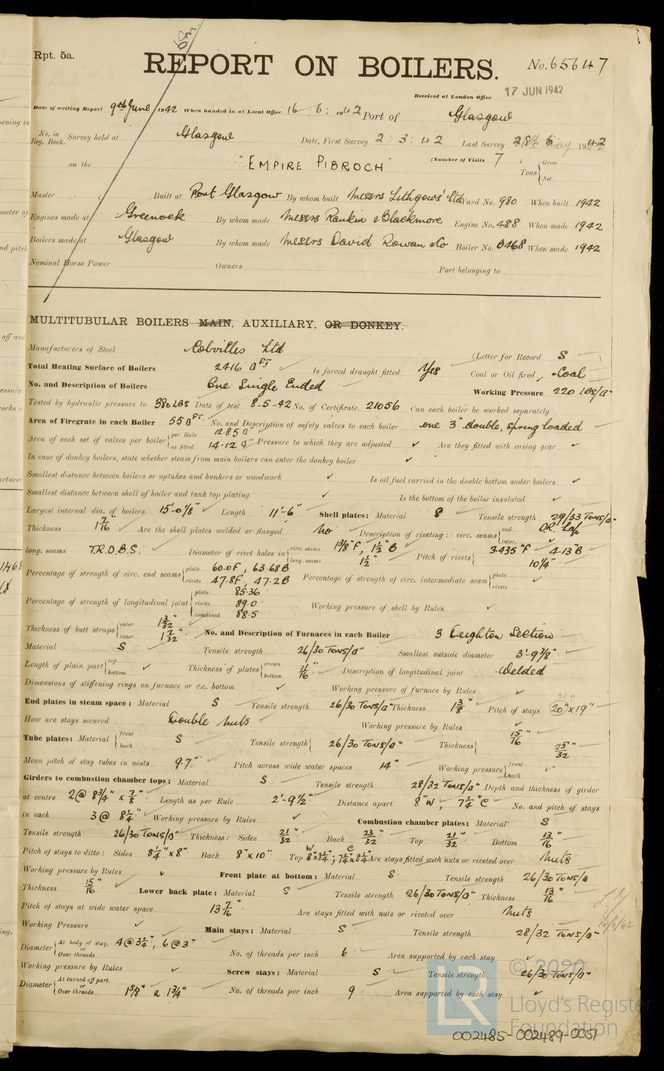 Rpt. 5a.
REPORT ON BOILERS.
No. 65647
Received at London Office 17 JUN 1942
Date of writing Report 9th June 1942 When handed in at Local Office 16 - 6 - 1942 Port of Glasgow
No. in Reg. Book. Survey held at Glasgow Date, First Survey 2 : 3 : 42 Last Survey 1942
on the "EMPIRE PIBROCH" (Number of Visits 7) Tons { Gross Net
Master Built at Port Glasgow By whom built Messrs Lithgows Ltd Yard No. 980 When built 1942
Engines made at Greenock By whom made Messrs Rankin & Blackmore Engine No. 488 When made 1942
Boilers made at Glasgow By whom made Messrs David Rowan & Co Boiler No. B468 When made 1942
Nominal Horse Power Owners Port belonging to
MULTITUBULAR BOILERS MAIN, AUXILIARY, OR DONKEY.
Manufacturers of Steel Colvilles Ltd (Letter for Record S
Total Heating Surface of Boilers 2416 □ FT Is forced draught fitted Yes Coal or Oil fired Coal
No. and Description of Boilers One Single Ended Working Pressure 220 LBS/□"
Tested by hydraulic pressure to 380 LBS Date of test 8-5-42 No. of Certificate 21056 Can each boiler be worked separately
Area of Firegrate in each Boiler 55 □ FT. No. and Description of safety valves to each boiler one 3" double, Spring loaded
Area of each set of valves per boiler { per Rule 12.85 □" as fitted 14.12 □" Pressure to which they are adjusted ✓ Are they fitted with easing gear ✓
In case of donkey boilers, state whether steam from main boilers can enter the donkey boiler ✓
Smallest distance between boilers or uptakes and bunkers or woodwork ✓ Is oil fuel carried in the double bottom under boilers ✓
Smallest distance between shell of boiler and tank top plating ✓ Is the bottom of the boiler insulated ✓
Largest internal dia. of boilers 15'-0⅛" Length 11'-6" Shell plates: Material S Tensile strength 29/33 TONS/□"
Thickness 1 7/16" Are the shell plates welded or flanged No Description of riveting: circ. seams { end D.R. Lap inter. ✓
long. seams T.R.D.B.S. Diameter of rivet holes in { circ. seams 1⅜" F, 1½" B long. seams 1½" Pitch of rivets { 3.435" F 4.13" B 10¼"
Percentage of strength of circ. end seams { plate 60.0 F, 63.68 B rivets 47.8 F, 47.2 B Percentage of strength of circ. intermediate seam { plate rivets ✓
Percentage of strength of longitudinal joint { plate 85.36 rivets 89.0 combined 88.5 Working pressure of shell by Rules ✓
Thickness of butt straps { outer 1 3/32" inner 1 7/32" No. and Description of Furnaces in each Boiler 3 Deighton Section
Material S Tensile strength 26/30 TONS/□" Smallest outside diameter 3'-9⅜"
Length of plain part { top bottom ✓ Thickness of plates { crown bottom 11/16" Description of longitudinal joint Welded
Dimensions of stiffening rings on furnace or c.c. bottom ✓ Working pressure of furnace by Rules ✓
End plates in steam space: Material S Tensile strength 26/30 TONS/□" Thickness 1⅜" Pitch of stays 20" x 19"
How are stays secured Double Nuts Working pressure by Rules ✓
Tube plates: Material { front back S Tensile strength { 26/30 TONS/□" Thickness { 15/16" 25/32"
Mean pitch of stay tubes in nests 9.7" Pitch across wide water spaces 14" Working pressure { front back ✓
Girders to combustion chamber tops: Material S Tensile strength 28/32 TONS/□" Depth and thickness of girder
at centre 2 @ 8¾" x ⅞" Length as per Rule 2'-9½" Distance apart 8" W, 7¼" C No. and pitch of stays
in each 3 @ 8¼" Working pressure by Rules ✓ Combustion chamber plates: Material S
Tensile strength 26/30 TONS/□" Thickness: Sides 21/32" Back 23/32" Top 21/32" Bottom 13/16"
Pitch of stays to ditto: Sides 8¼" x 8" Back 8" x 10" Top Are stays fitted with nuts or riveted over Nuts
Working pressure by Rules ✓ Front plate at bottom: Material S Tensile strength 26/30 TONS/□"
Thickness 15/16" Lower back plate: Material S Tensile strength 26/30 TONS/□" Thickness 13/16"
Pitch of stays at wide water space 13 7/16" Are stays fitted with nuts or riveted over Nuts
Working Pressure ✓ Main stays: Material S Tensile strength 28/32 TONS/□"
Diameter { At body of stay, or Over threads. 4 @ 3¼", 6 @ 3" No. of threads per inch 6 Area supported by each stay ✓
Working pressure by Rules ✓ Screw stays: Material S Tensile strength 26/30 TONS/□"
Diameter { At turned off part, or Over threads. 1⅝" & 1¾" No. of threads per inch 9 Area supported by each stay ✓
© 2020
Lloyd's Register
Foundation
002485-002489-0051